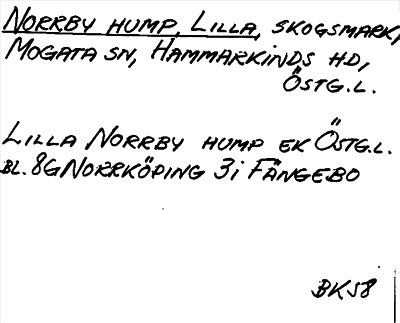 NORRBY HUMP, LILLA, SKOGSMARK,
MOGATA SN, HAMMARKINDS HD,
ÖSTG.L.
LILLA NORRBY HUMP EK ÖSTG.L.
BL. 8G NORRKÖPING 3i FÄNGEBO
BK58